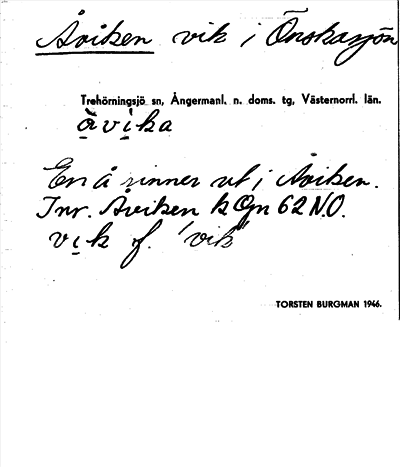 Åviken vik i Önskasjön
Trehörningsjö sn, Ångermanl. n. doms. tg, Västernorrl. län.
å̀vi̠ka
En å rinner ut i Åviken.
Inr. Åviken k Ögn 62 NO.
vi̠k f. 'vik'
TORSTEN BURGMAN 1946.